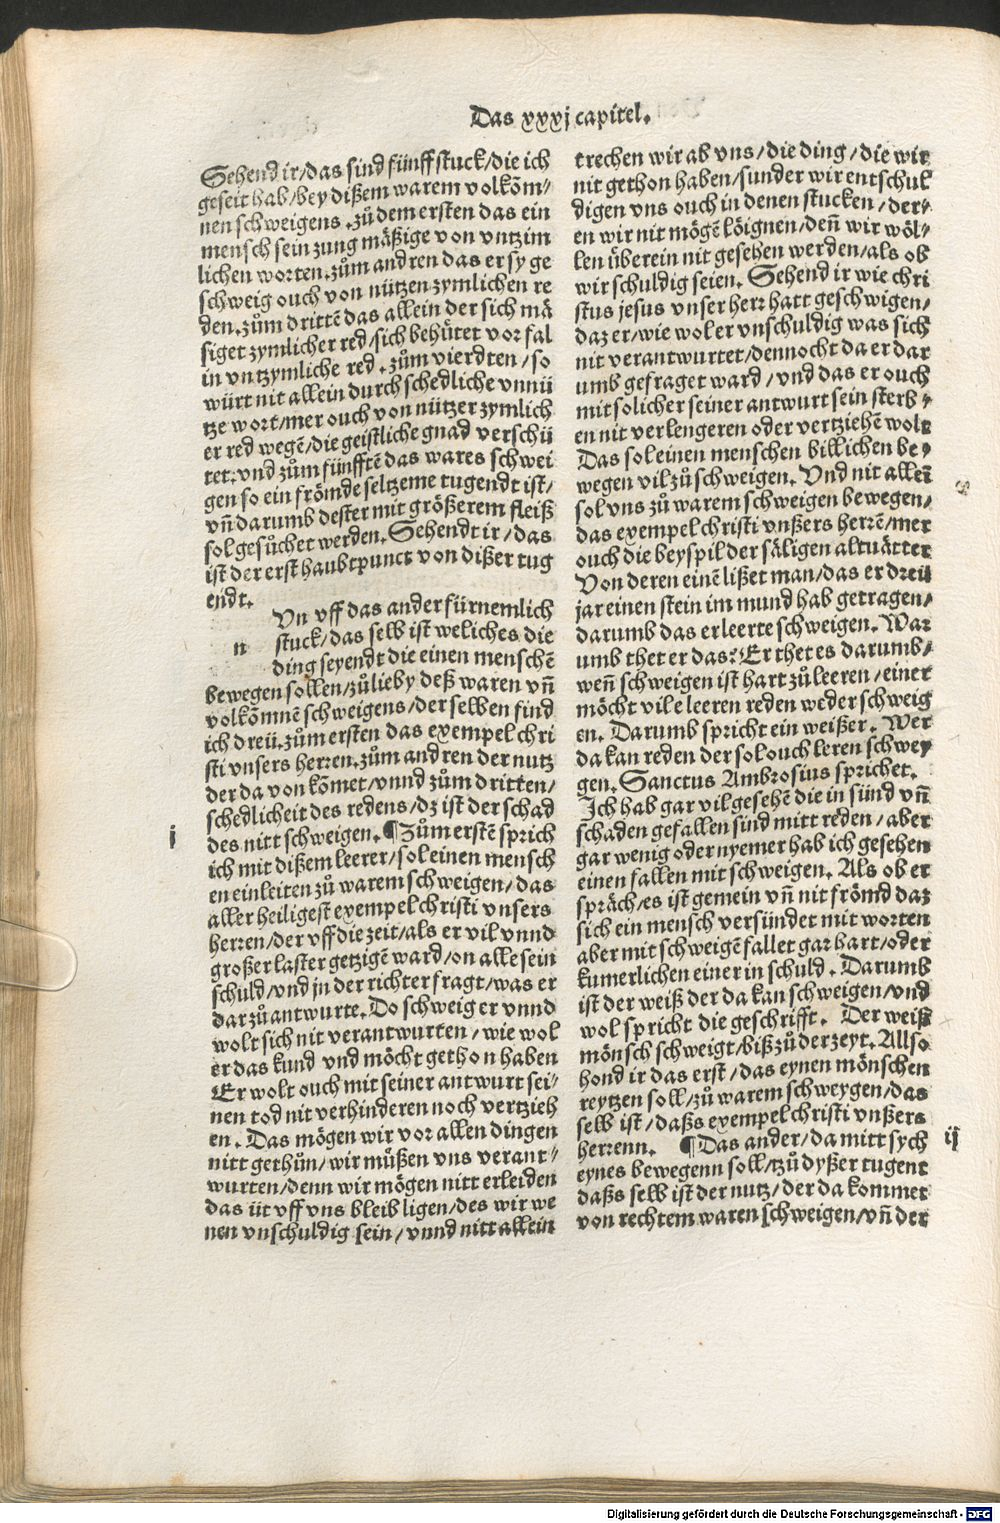 Das xxxj capitel.
Sehend ir/das sind fünff stuck/die ich
geseit hab/bey dißem warem volkōm⸗
nen schweigens .zů dem ersten das ein
mensch sein zung mäßige von vntzim
lichen worten.zům andren das er sy ge
schweig ouch von nützen zymlichen re
den.zům drittē das allein der sich mä
siget zymlicher red/sich behůtet vor fal
in vntzymliche red .zům vierdten/so
würt nit allein durch schedliche vnnü
tze wort/mer ouch von nützer zymlich
er red wegē/die geistliche gnad verschü
tet.vnd zům fünfftē das wares schwei
gen so ein frömde seltzeme tugendt ist/
vn̄ darumb dester mit größerem fleiß
sol gesůchet werden.Sehendt ir/das
ist der erst haubtpunct von dißer tug
endt.
n Vn vff das ander fürnemlich
stuck/das selb ist weliches die
ding seyendt die einen menschē
bewegen sollen/zůlieby deß waren vn̄
volkōmnē schweigens/der selben find
ich dreü.zům ersten das exempel chri
sti vnsers herren.zům andren der nutz
der da von kōmet/vnnd zům dritten/
schedlicheit des redens/dz ist der schad
i
des nitt schweigen.¶Zům erstē sprich
ich mit dißem leerer/sol einen mensch
en einleiten zů warem schweigen/das
aller heiligest exempel christi vnsers
herren/der vff die zeit/als er vil vnnd
großer laster getzigē ward/on alle sein
schuld/vnd jn der richter fragt/was er
dar zů antwurte.Do schweig er vnnd
wolt sich nit verantwurten/wie wol
er das kund vnd möcht gethon haben
Er wolt ouch mit seiner antwurt sei⸗
nen tod nit verhinderen noch vertzieh
en . Das mögen wir vor allen dingen
nitt gethůn/wir můßen vns verant⸗
wurten/denn wir mögen nitt erleiden
das üt vff vns bleib ligen/des wir we
nen vnschuldig sein/vnnd nitt allein
trechen wir ab vns/die ding/die wir
nit gethon haben/sunder wir entschul
digen vns ouch in denen stucken/der⸗
en wir nit mögē löignen/den̄ wir wöl⸗
len überein nit gesehen werden/als ob
wir schuldig seien. Sehend ir wie chri
stus jesus vnser herr hatt geschwigen/
daz er/wie wol er vnschuldig was sich
nit verantwurtet/dennocht da er dar
umb gefraget ward/vnd das er ouch
mit solicher seiner antwurt sein sterb⸗
en nit verlengeren oder vertziehē wolt
Das sol einen menschen billichen be⸗
wegen vil zů schweigen. Vnd nit alleī
sol vns zů warem schweigen bewegen/
das exempel christi vnßers herrē/mer
ouch die beyspil der säligen altuätter
Von deren einē lißet man/das er dreü
jar einen stein im mund hab getragen/
darumb das er leerte schweigen. War
umb thet er das? Er thet es darumb/
wen̄ schweigen ist hart zů leeren/einer
möcht vil e leeren reden weder schweig
en. Darumb spricht ein weißer. Wer
da kan reden der sol ouch leren schwey
gen. Sanctus Ambrosius sprichet.
Ich hab gar vil gesehē die in sünd vn̄
schaden gefallen sind mitt reden/aber
gar wenig oder nyemer hab ich gesehen
einen fallen mit schweigen. Als ob er
spräch/es ist gemein vn̄ nit frömd daz
sich ein mensch versündet mit worten
aber mit schweigē fallet gar hart/oder
kumerlichen einer in schuld . Darumb
ist der weiß der da kan schweigen/vnd
wol spricht die geschrifft. Der weiß
mönsch schweigt/biß zů der zeyt.Allso
hond ir das erst/das eynen mönschen
reytzen soll/zů warem schweygen/das
selb ist/daßs exempel christi vnßers
ij
herrenn. ¶Das ander/da mitt sych
eynes bewegenn soll/tzů dyßer tugent
daßs selb ist der nutz/der da kommet
von rechtem waren schweigen/vn̄ der
Digitalisierung gefördert durch die Deutsche Forschungsgemeinschaft - DFG